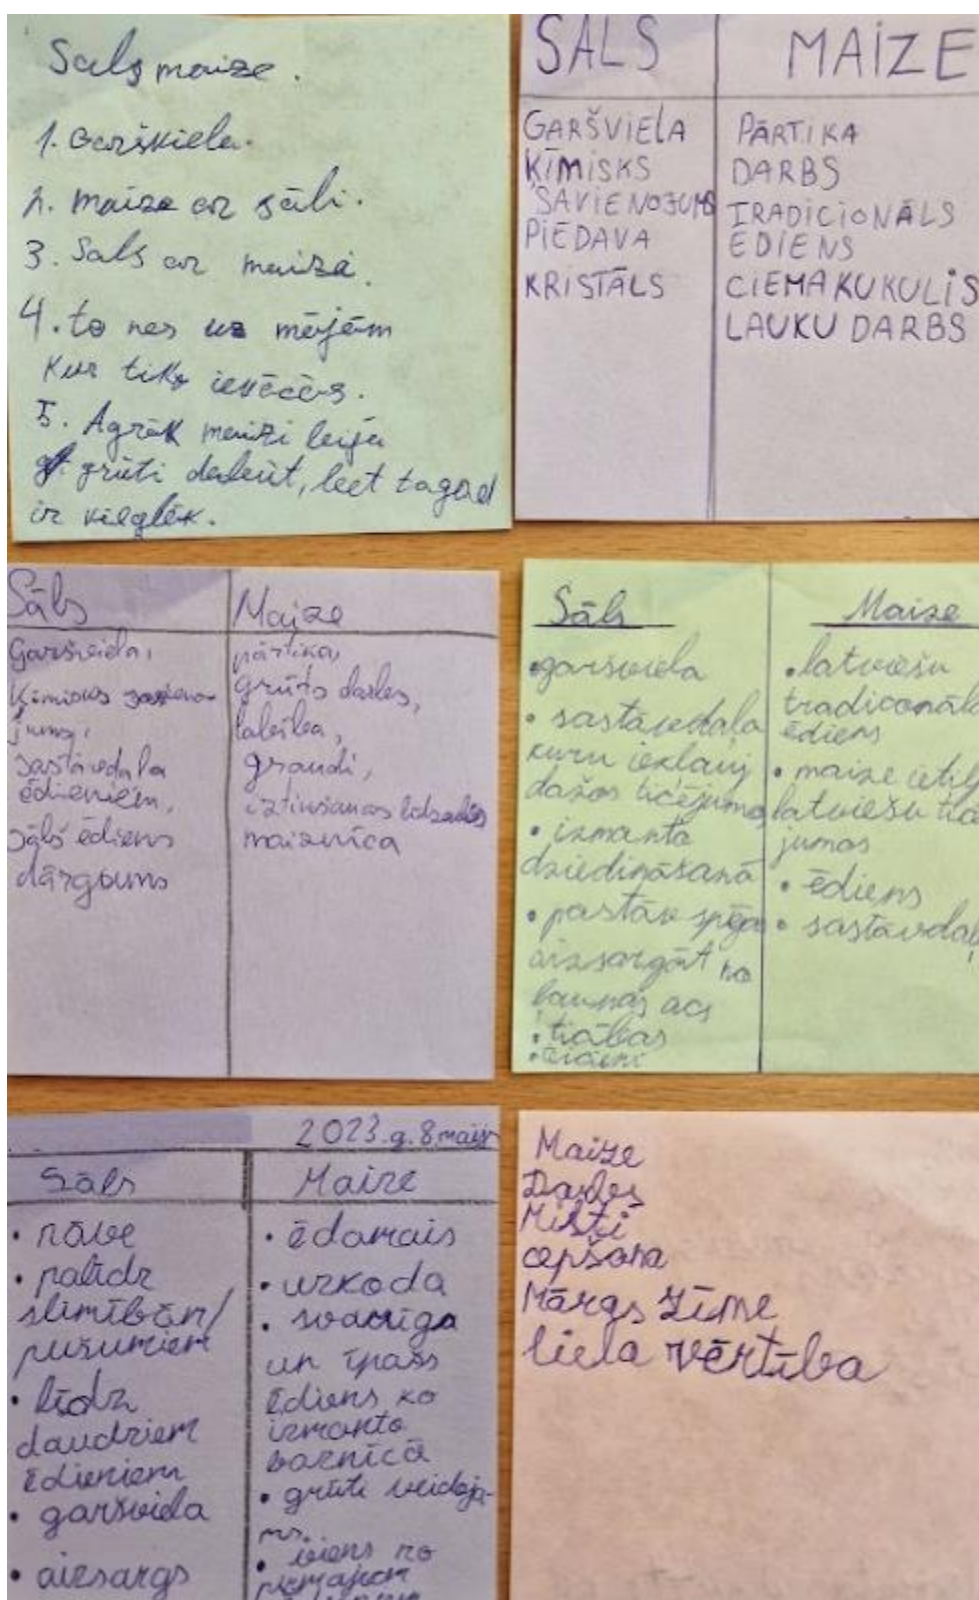 Sāls maize.
1. Garšviela.
2. maize ar sāli.
3. Sāls ar maizi.
4. to nes uz mājām
kur tiko ievācās.
5. Agrāk maizi bija
grūti dabūt, bet tagad
ir vieglāk.
SĀLS MAIZE
GARŠVIELA
ĶĪMISKS
SAVIENOJUMS
PIEDAVA
KRISTĀLS
PĀRTIKA
DARBS
TRADICIONĀLS
ĒDIENS
CIEMAKUKULIS
LAUKU DARBS
Sāls
Garšviela,
Ķīmisks savieno-
jums,
sastāvdaļa
ēdieniem,
sāļš ēdiens
dārgums
Maize
pārtika,
grūts darbs,
labība,
graudi,
iztikšanas līdzeklis
maiznīca
Sāls
• garšviela
• sastāvdaļa
kuru iekļauj
dažos ticējumos
• izmanto
dziedināšanā
• pastāv spēja
aizsargāt no
ļaunās acs
• ticības
Maize
• latviešu
tradiconāls
ēdiens
• maize ietilp
latviešu
jumos
• ēdiens
• sastāvdaļ
2023.g. 8.maijs
Sāls
• nāve
• palīdz
slimībām/
pušumiem
• līdz
daudziem
ēdieniem
• garšviela
• aizsargs
Maize
• ēdamais
• uzkoda
• svarīga
un īpašs
ēdiens ko
izmanto
baznīcā
• grūti veidoja-
ms.
• viens no
pirmajiem
Maize
Darbs
Milti
cepšana
Māras zīme
liela vērtība